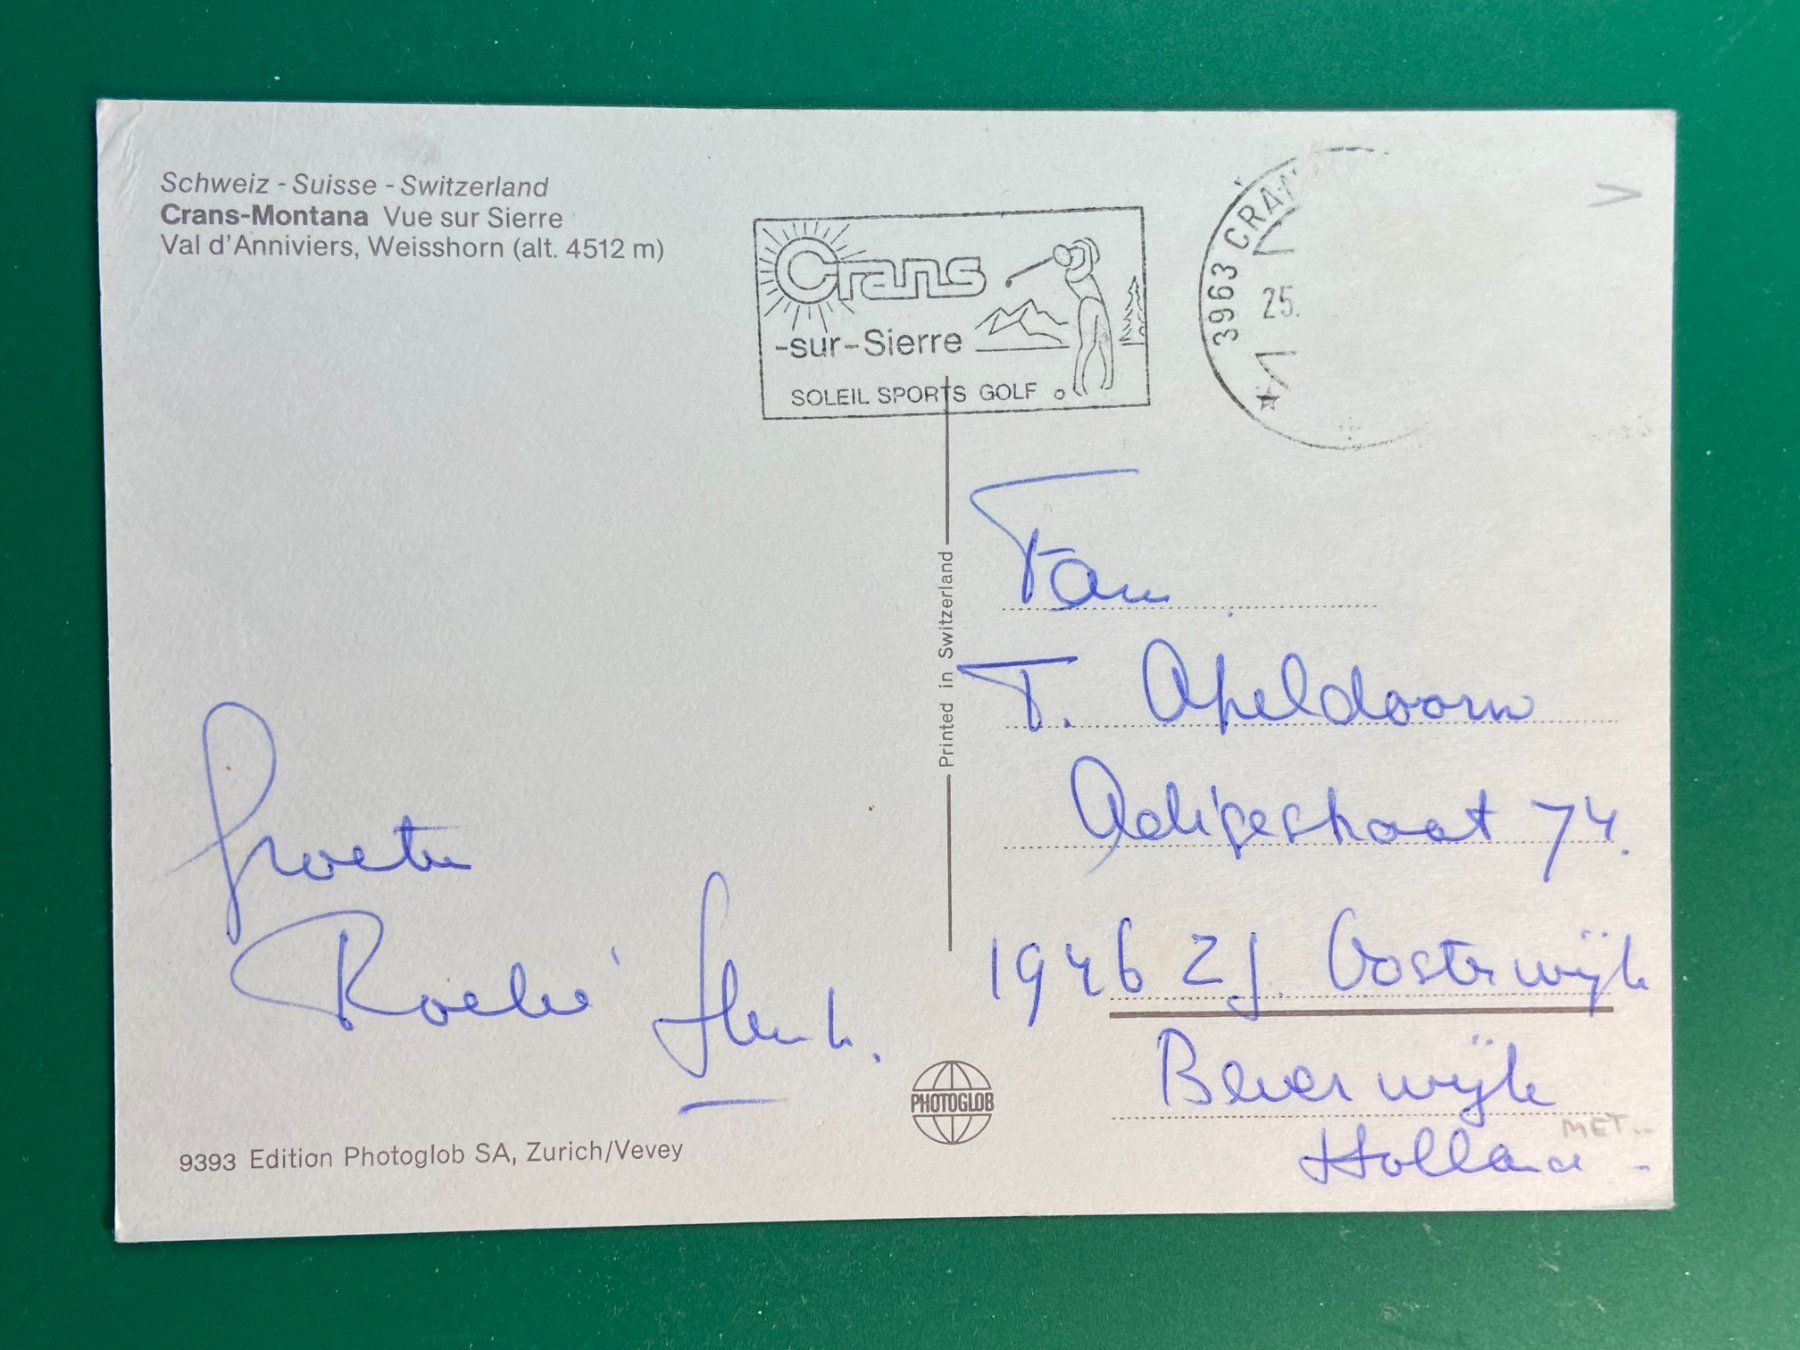 Schweiz - Suisse - Switzerland
Crans-Montana Vue sur Sierre
Val d'Anniviers, Weisshorn (alt. 4512 m)
Crans
-sur-Sierre
SOLEIL SPORTS GOLF
3963 CRAN
25.
Printed in Switzerland
Fam
T. Apeldoorn
74.
1946 ZJ. Oosterwijk
Beverwijk
Holland
MET
Groeten
Henk.
PHOTOGLOB
9393 Edition Photoglob SA, Zurich/Vevey